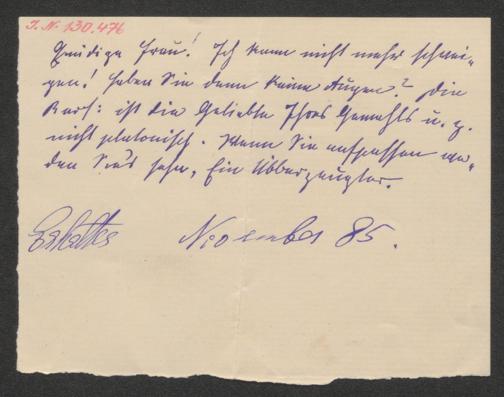 I. N. 130.476
Gnädige Frau! Ich kann nicht mehr schwei-
gen! Haben Sie denn keine Augen? Die
ist die Geliebte Ihres Gemahls u. z.
nicht platonisch. Wenn Sie aufpassen wer-
den Sie's sehn, Ein Überzeugter.
Erhalten November 85.